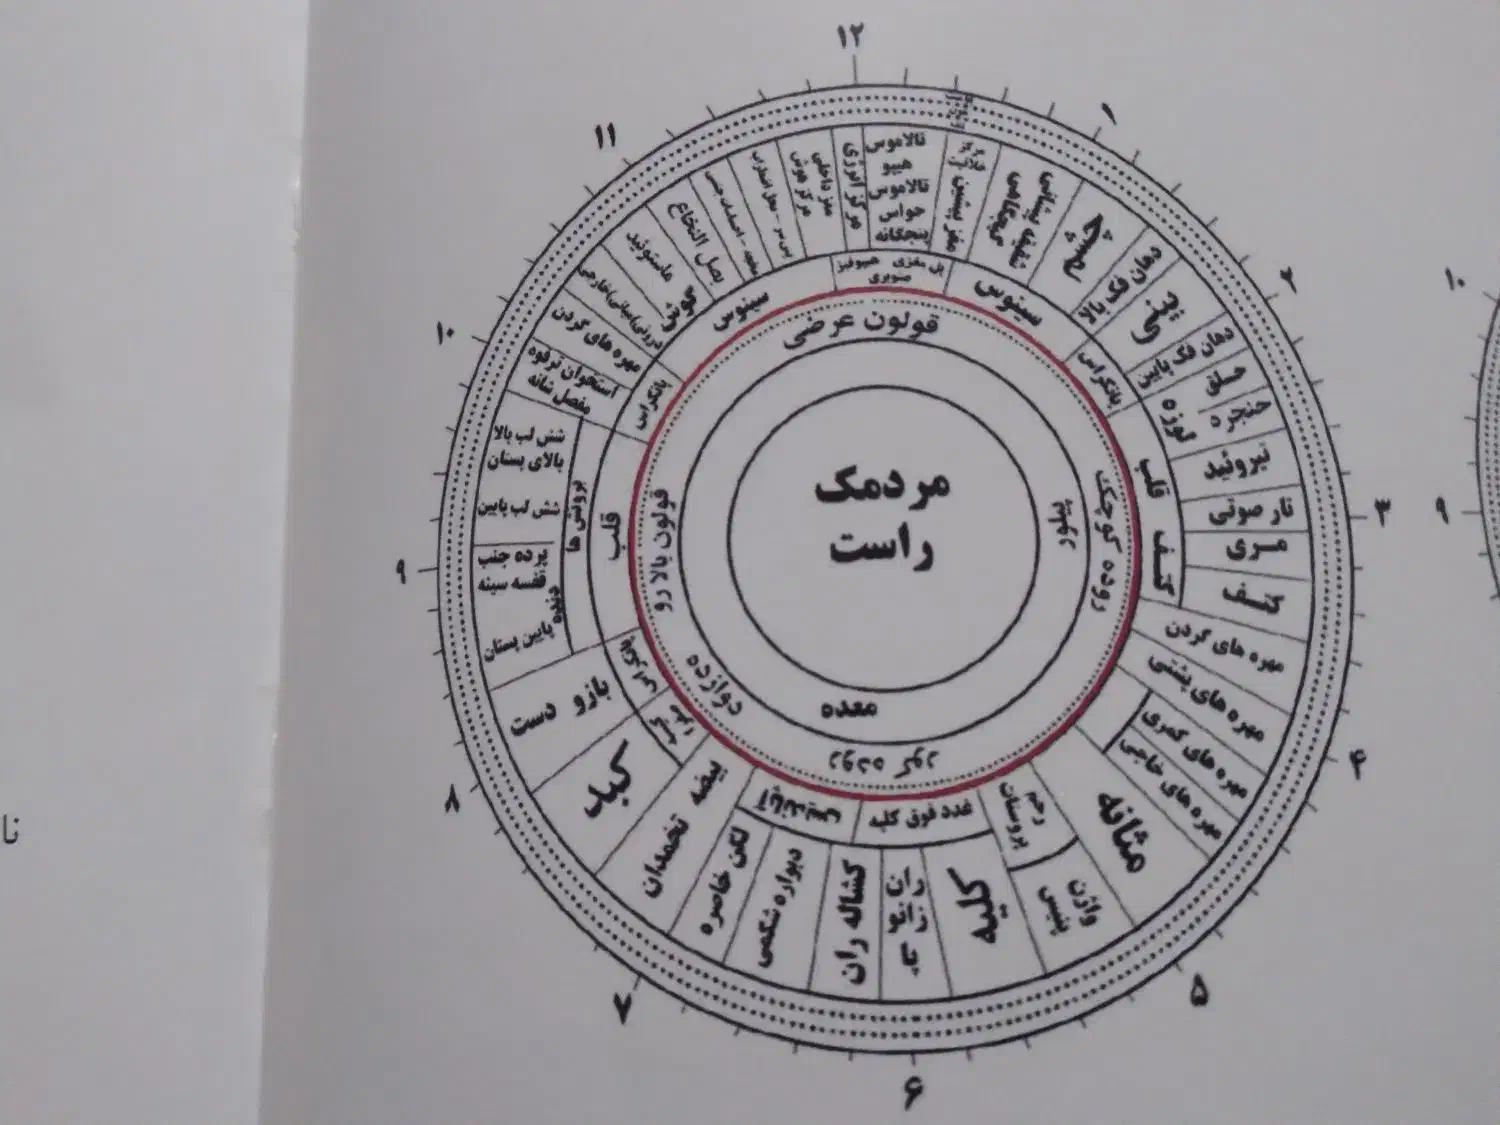 ۱۲
۱
۲
۳
۴
۵
۶
۷
۸
۹
۱۰
۱۱
تالاموس
هیپو
تالاموس
حواس
پنجگانه
مغز پیشین
شقیقه پیشانی
گیجگاهی
دهان فک بالا
دهان فک پایین
حنجره
لوزه
تیروئید
تار صوتی
مری
مهره های گردن
مهره های پشتی
مهره های کمری
مهره های خاجی
مثانه
واژن
پنیس
رحم
پروستات
کلیه
ران
کشاله ران
دیواره شکمی
لگن خاصره
بیضه تخمدان
کبد
بازو دست
پایین پستان
دنده
پرده جنب
قفسه سینه
شش لب پایین
شش لب بالا
بالای پستان
برونش ها
استخوان ترقوه
مفصل شانه
مهره های گردن
گوش
ماستوئید
بصل النخاع
مغز داخلی
مرکز هوش
مرکز انرژی
پل مغزی هیپوفیز
صنوبری
سینوس
پانکراس
قلب
کتف
غدد فوق کلیه
آپاندیس
کیسه صفرا
پانکراس
قلب
پانکراس
سینوس
قولون عرضی
روده کوچک
روده کور
دوازده
قولون بالا رو
پیلور
معده
مردمک
راست
۱۰
۹
نا